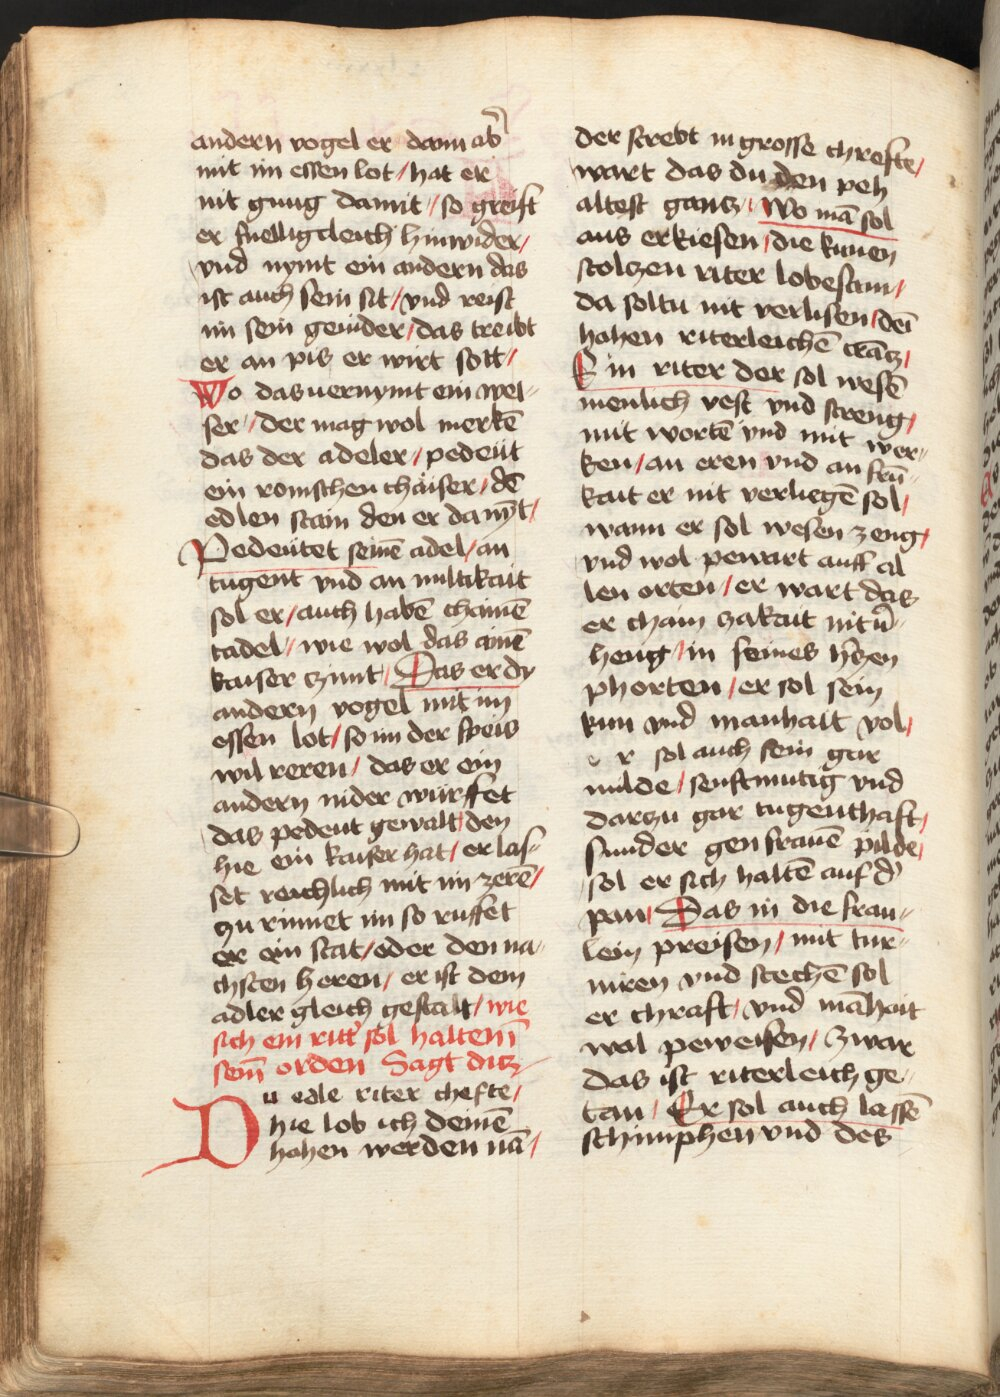 andern vogel er dann ab̃
mit im essen lot / hat er
nit gnug damit // so greift
er snelligcleich hinwider /
vnd nymt ein andern das
ist auch sein sit / vnd reist
im sein gevider / das treibt
er an pis er wirt sott /
Wo das vernymt ein wel-
ser / der mag wol merkē
das der adeler / pedeüt
ein romschen chaiser / dē
edlen stain den er da nymt /
Pedeütet seinē adel / an
tugent vnd an miltikait
sol er / auch habē chainē
tadel // wie wol das ainē
kaiser czimt / Das er dy
andern vogel mit im
essen lot / so im der speis
wil reren / das er ein
andern nider würffet
das pedeut gewalt / den
hie ein kaiser hat / er las-
set reichlich mit im zerē /
zu rinnet im so ruffet
er ein stat / oder den na-
chsten heren / er ist dem
adler gleich gestalt / wie
sich ein ritt̉ sol halten ī
seim̄ orden Sagt ditz
Du edle riter chefte /
hie lob ich deinē
hohen werden nā /
der strebt in grosse chrefte /
wart das du den peh
altest gancz / Wo mā sol
aus erkiesen / die kunen
stolczen riter lobesam /
da soltu nit verlisen / dei
hohen riterleichē crācz /
Ein riter der sol wesē
menlich vest vnd streng /
mit wortē vnd mit wer-
ken / an eren vnd an frū-
kait er nit verliegē sol /
wann er sol wesen zeng /
vnd wol pewart auff al
len orten / er wart das
er chain zakait nit v̉-
heng / in seines hczen
phorten / er sol sein
kun vnd manhait vol /
er sol auch sein gar
milde / senftmutig vnd
darczu gar tugenthaft /
sunder gen frauē pilde /
sol er sich haltē auf d̉
pan / Das in die frau-
lein preisen / mit tur-
niren vnd stechē sol
er chraft / vnd māhait
wol peweisen / zwar
das ist riterleich ge-
tan / Er sol auch lassē
schimphen vnd des